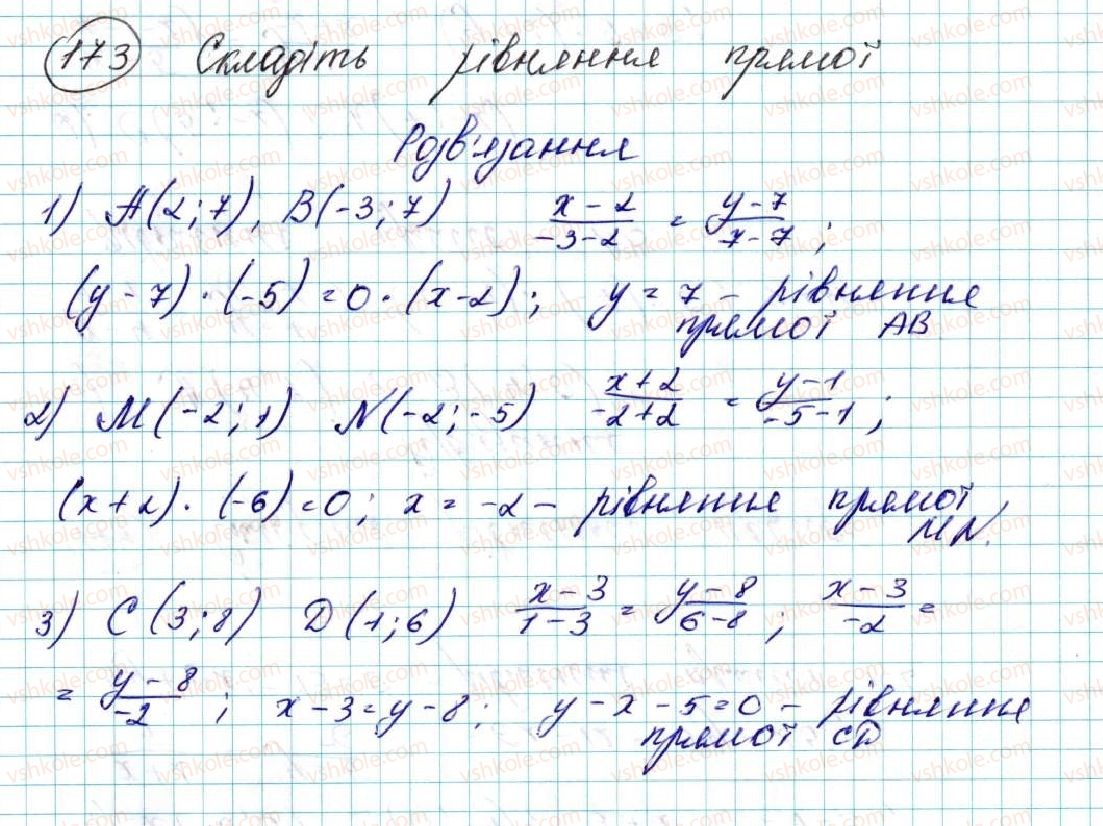 173 Складіть рівняння прямої
Розв'язання
1) A(2;7), B(-3;7) (x-2)/(-3-2) = (y-7)/(7-7);
(y-7)·(-5)=0·(x-2); y=7 – рівняння
прямої AB
2) M(-2;1) N(-2;-5) (x+2)/(-2+2) = (y-1)/(-5-1);
(x+2)·(-6)=0; x=-2 – рівняння прямої
MN.
3) C(3;8) D(1;6) (x-3)/(1-3) = (y-8)/(6-8); (x-3)/(-2) =
= (y-8)/(-2); x-3=y-8; y-x-5=0 – рівняння
прямої CD